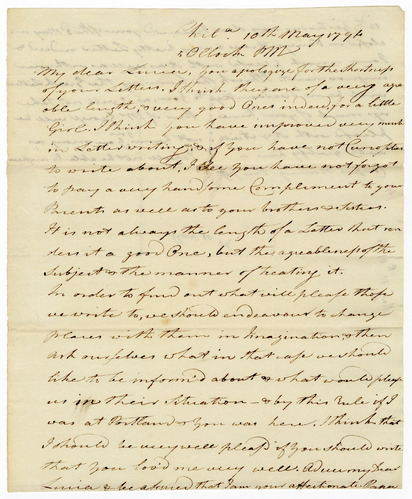 Phila 10th May 1794
5 OClock PM
My dear Lucia, you apologize for the shortness
of your Letters. I think they are of a very agre
able length, & very good Ones indeed for a little
Girl. I think you have improved very much
in Letter writing, & if you have not
to write about, I see you have not forgot
to pay a very handsome Complement to your
Parents as well as to your brothers & sisters.
It is not always the length of a Letter that ren
ders it a good One, but the agreableness of the
Subject & the manner of treating it.
In order to find out what will please those
we write to, we should endeavour to change
places with them in Imagination & then
ask ourselves what in that case we should
like to be inform'd about & what would please
us in their situation - & by this rule if I
was at Portland & you was here, I think that
I should be very well pleas'd if you should write
that you lov'd me very well. Adieu my Dear
Lucia & be assured that I am your affectionate Papa